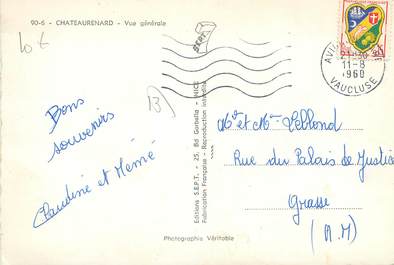 90-6 - CHATEAURENARD - Vue générale
10 €
B
Bons
souvenirs
Claudine et Mémé
Editions S.E.P.T. - 25, Bd Gorbella - NICE
Fabrication Française - Reproduction interdite
S.E.P.T.
Photographie Véritable
11-8
1960
VAUCLUSE
Mr et Mme Leblond
Rue du Palais de Justice
Grasse
(A.M)